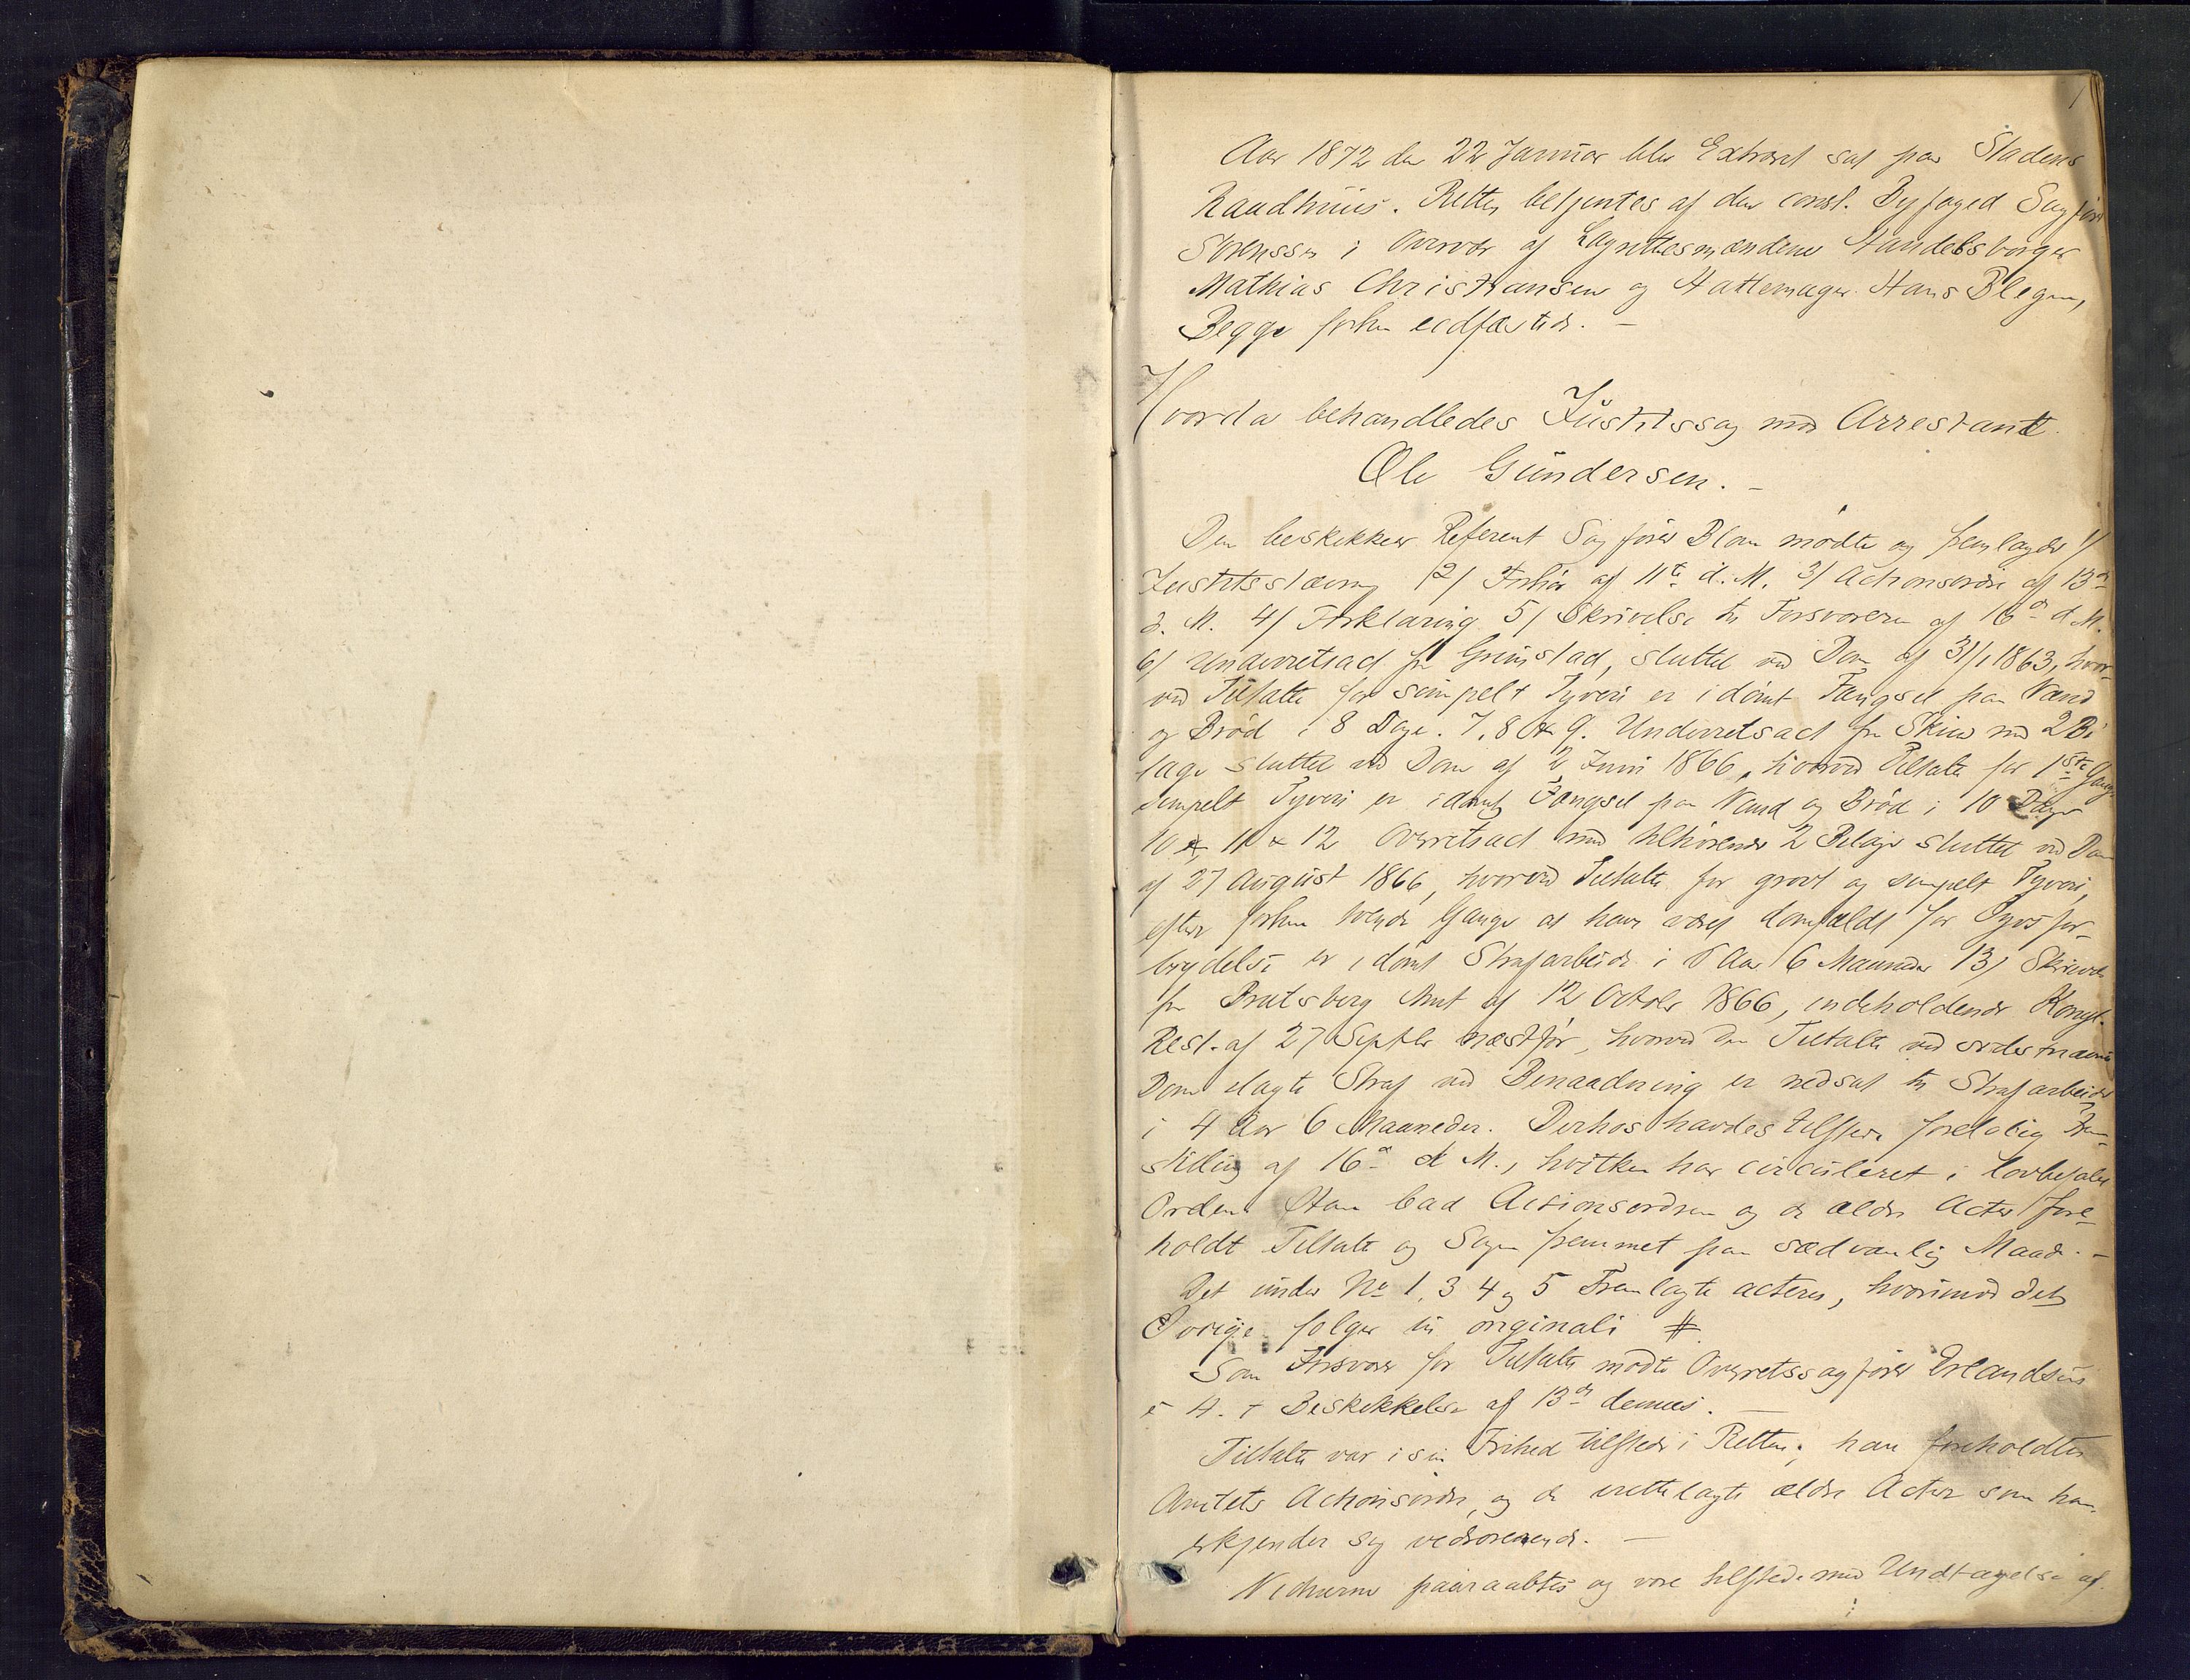 1
Aar 1872 den 22 Januar blev Extraret sat paa Stadens
Raadhuus. Retten betjentes af den const. Byfoged Sagfører
Sørenssen i Overvær af Lagrettesmændene Handelsborger
Mathias Christiansen og Hattemager Hans Blegen,
Begge forhen eedfæstede. –
Hvorda behandledes Justitssag mod Arrestant
Ole Gundersen. –
Den beskikkede Referent Sagfører Blom mødte og fremlagde 1/
Justitsstævning 2/ Forhør af 11te d. M. 3/ Actionsordre af 13de
d. M. 4/ Forklaring 5/ Skrivelse til Forsvareren af 16de d. M.
6/ Underretsact fra Grimstad, sluttet ved Dom af 31/1 1863, hvor-
ved Tiltalte for simpelt Tyveri er idømt Fængsel paa Vand
og Brød i 8 Dage. 7, 8 & 9. Underretsact fra Skien med 2 Bi
lage sluttet ved Dom af 2 Juni 1866, hvorved Tiltalte for 1ste Gang
simpelt Tyveri er idømt Fængsel paa Vand og Brød i 10 Dage
10 & 11 & 12 Overretsact med tilhørende 2 Bilage sluttet ved Dom
af 27 August 1866, hvorved Tiltalte for grovt og simpelt Tyveri,
efter forhen tvende Gange at have været domfældt for Tyvsfor-
brydelse er idømt Strafarbeide i 6 Aar 6 Maaneder 13/ Skrivelse
fra Bratsberg Amt af 12 Octobr 1866, indeholdende Kongl.
Resl. af 27 Septbr næstfør, hvorved den Tiltalte ved sidstnævnte
Dom ilagte Straf ved Benaadning er nedsat til Strafarbeide
i 4 Aar 6 Maaneder. Derhos havdes tilstede foreløbig Frem-
stilling af 16de d. M., hvilken har circuleret i lovbefalet
Orden. Han bad Actionsordren og de ældre Acter fore-
holdt Tiltalte og Sagen fremmet paa sædvanlig Maade. –
Det under No 1, 3 4 og 5 Fremlagte acteres, hvorimod det
Øvrige følger in originali #.
Som Forsvarer for Tiltalte mødte Overretssagfører Erlandsen
e 4. t Beskikkelse af 13de dennes. –
Tiltalte var i sin Frihed tilstede i Retten; han foreholdtes
Amtets Actionsordre, og de irettelagte ældre Acter som han
erkjender sig vedrørende. –
Vidnerne paaraabtes og vare tilstede med Undtagelse af